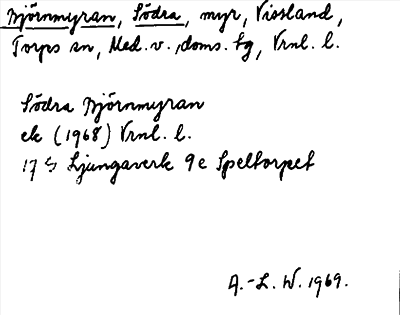 Björnmyran, Södra, myr, Vissland,
Torps sn, Med. v., doms. sg, Vrnl. l.
Södra Björnmyran
ek (1968) Vrnl. l.
17 G Ljungaverk 9e Speltorpet
A.-L. W. 1969.